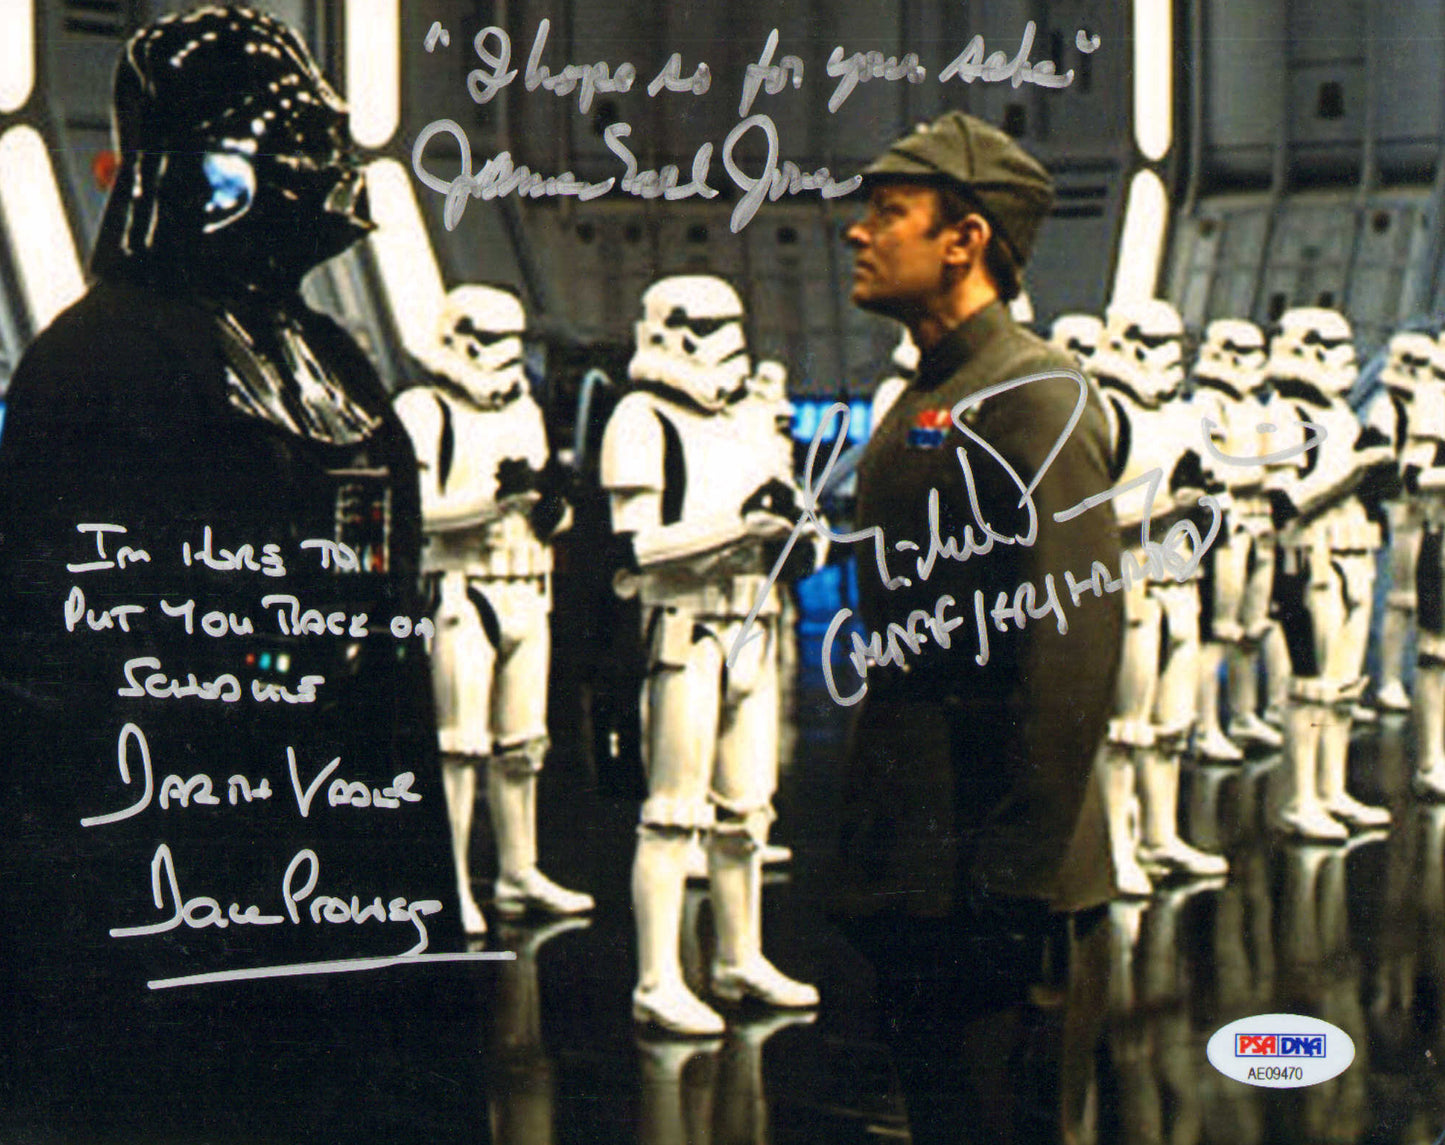 "I hope so for your sake"
James Earl Jones
Im Here To
Put You Back on
Schedule
Darth Vader
Dave Prowse
Michael P
(MOFF JERJERROD)
PSA DNA
AE09470